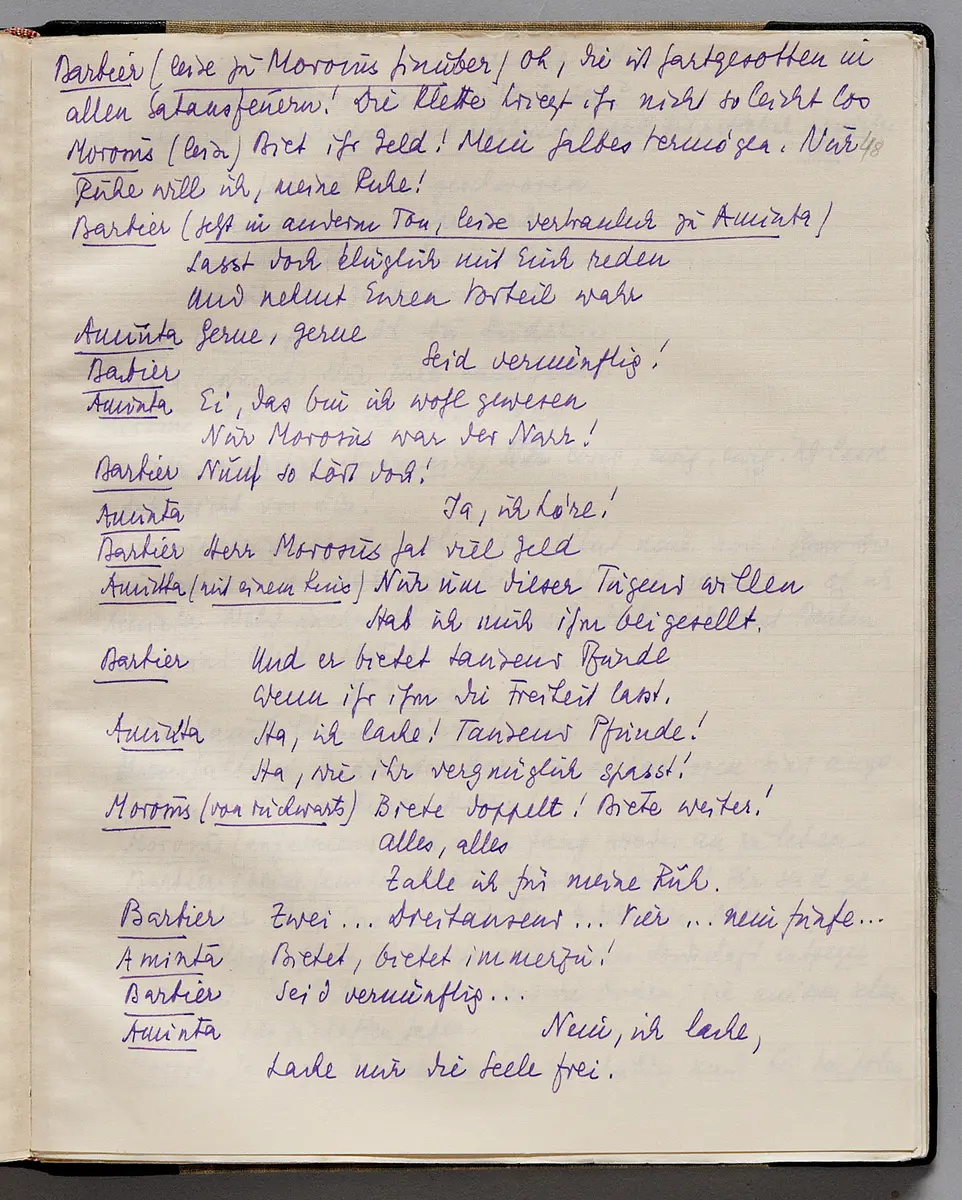 Barbier (leise zu Morosus hinüber) Oh, die ist hartgesotten in
allen Satansfeuern! Die Klette kriegt ihr nicht so leicht los
Morosus (leise) Biet ihr Geld! Mein halbes Vermögen. Nur 48
Ruhe will ich, meine Ruhe!
Barbier (jetzt in anderm Ton, leise vertraulich zu Aminta)
Lasst doch klüglich mit Euch reden
Und nehmt Euren Vorteil wahr
Aminta Gerne, gerne
Barbier Seid vernünftig!
Aminta Ei, das bin ich wohl gewesen
Nur Morosus war der Narr!
Barbier Nun so hört doch!
Aminta Ja, ich höre!
Barbier Herr Morosus hat viel Geld
Aminta (mit einem Knix) Nur um dieser Tugend willen
Hab ich mich ihm beigesellt.
Barbier Und er bietet tausend Pfunde
Wenn ihr ihm die Freiheit lasst.
Aminta Ha, ich lache! Tausend Pfunde!
Ha, wie ihr vergnüglich spasst!
Morosus (von rückwärts) Biete doppelt! Biete weiter!
Alles, alles
Zahle ich für meine Ruh.
Barbier Zwei... Dreitausend... Vier... nein fünfe...
Aminta Bietet, bietet immerzu!
Barbier Seid vernünftig...
Aminta Nein, ich lache,
Lache mir die Seele frei.